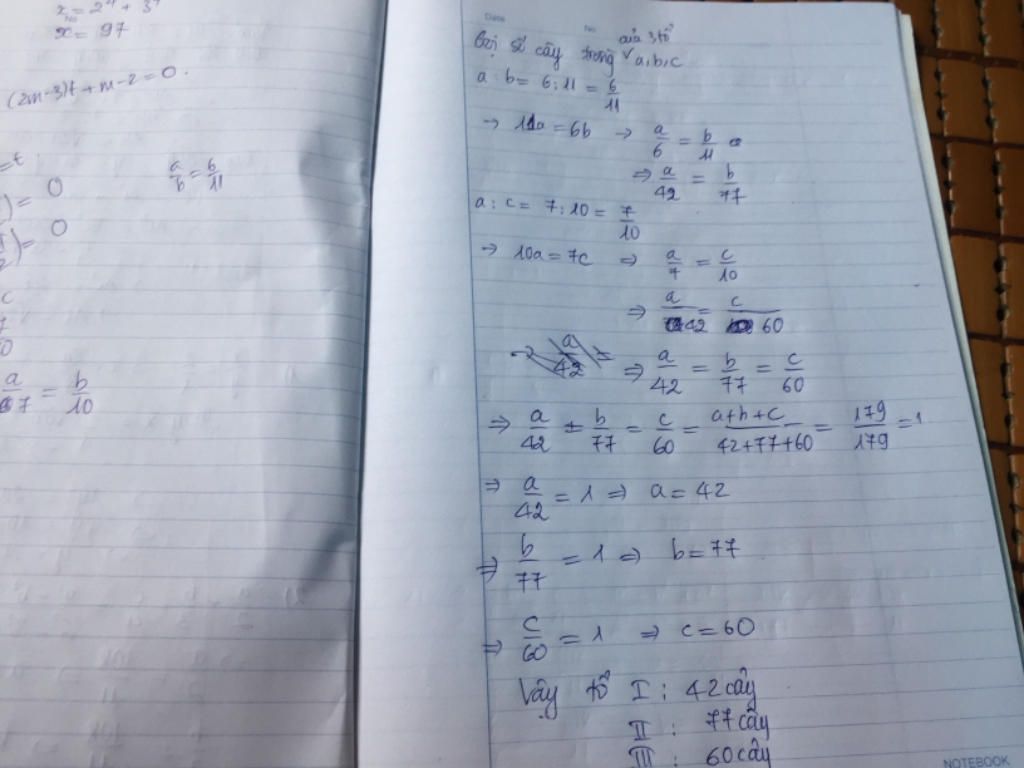 x = 2⁴ + 3⁴
x = 97
(2m-3)t + m-2 = 0.
=t
) = 0
) = 0
a/b = 6/11
c
7
0
a/7 = b/10
Date No
của 3 tổ
Gọi số cây trồng √ a, b, c
a : b = 6 : 11 = 6/11
→ 11a = 6b → a/6 = b/11
⇒ a/42 = b/77
a : c = 7 : 10 = 7/10
→ 10a = 7c ⇒ a/7 = c/10
⇒ a/42 = c/60
⇒ a/42 = b/77 = c/60
⇒ a/42 = b/77 = c/60 = a+b+c/42+77+60 = 179/179 = 1
⇒ a/42 = 1 ⇒ a = 42
⇒ b/77 = 1 ⇒ b = 77
⇒ c/60 = 1 ⇒ c = 60
Vậy tổ I : 42 cây
II : 77 cây
III : 60 cây
NOTEBOOK